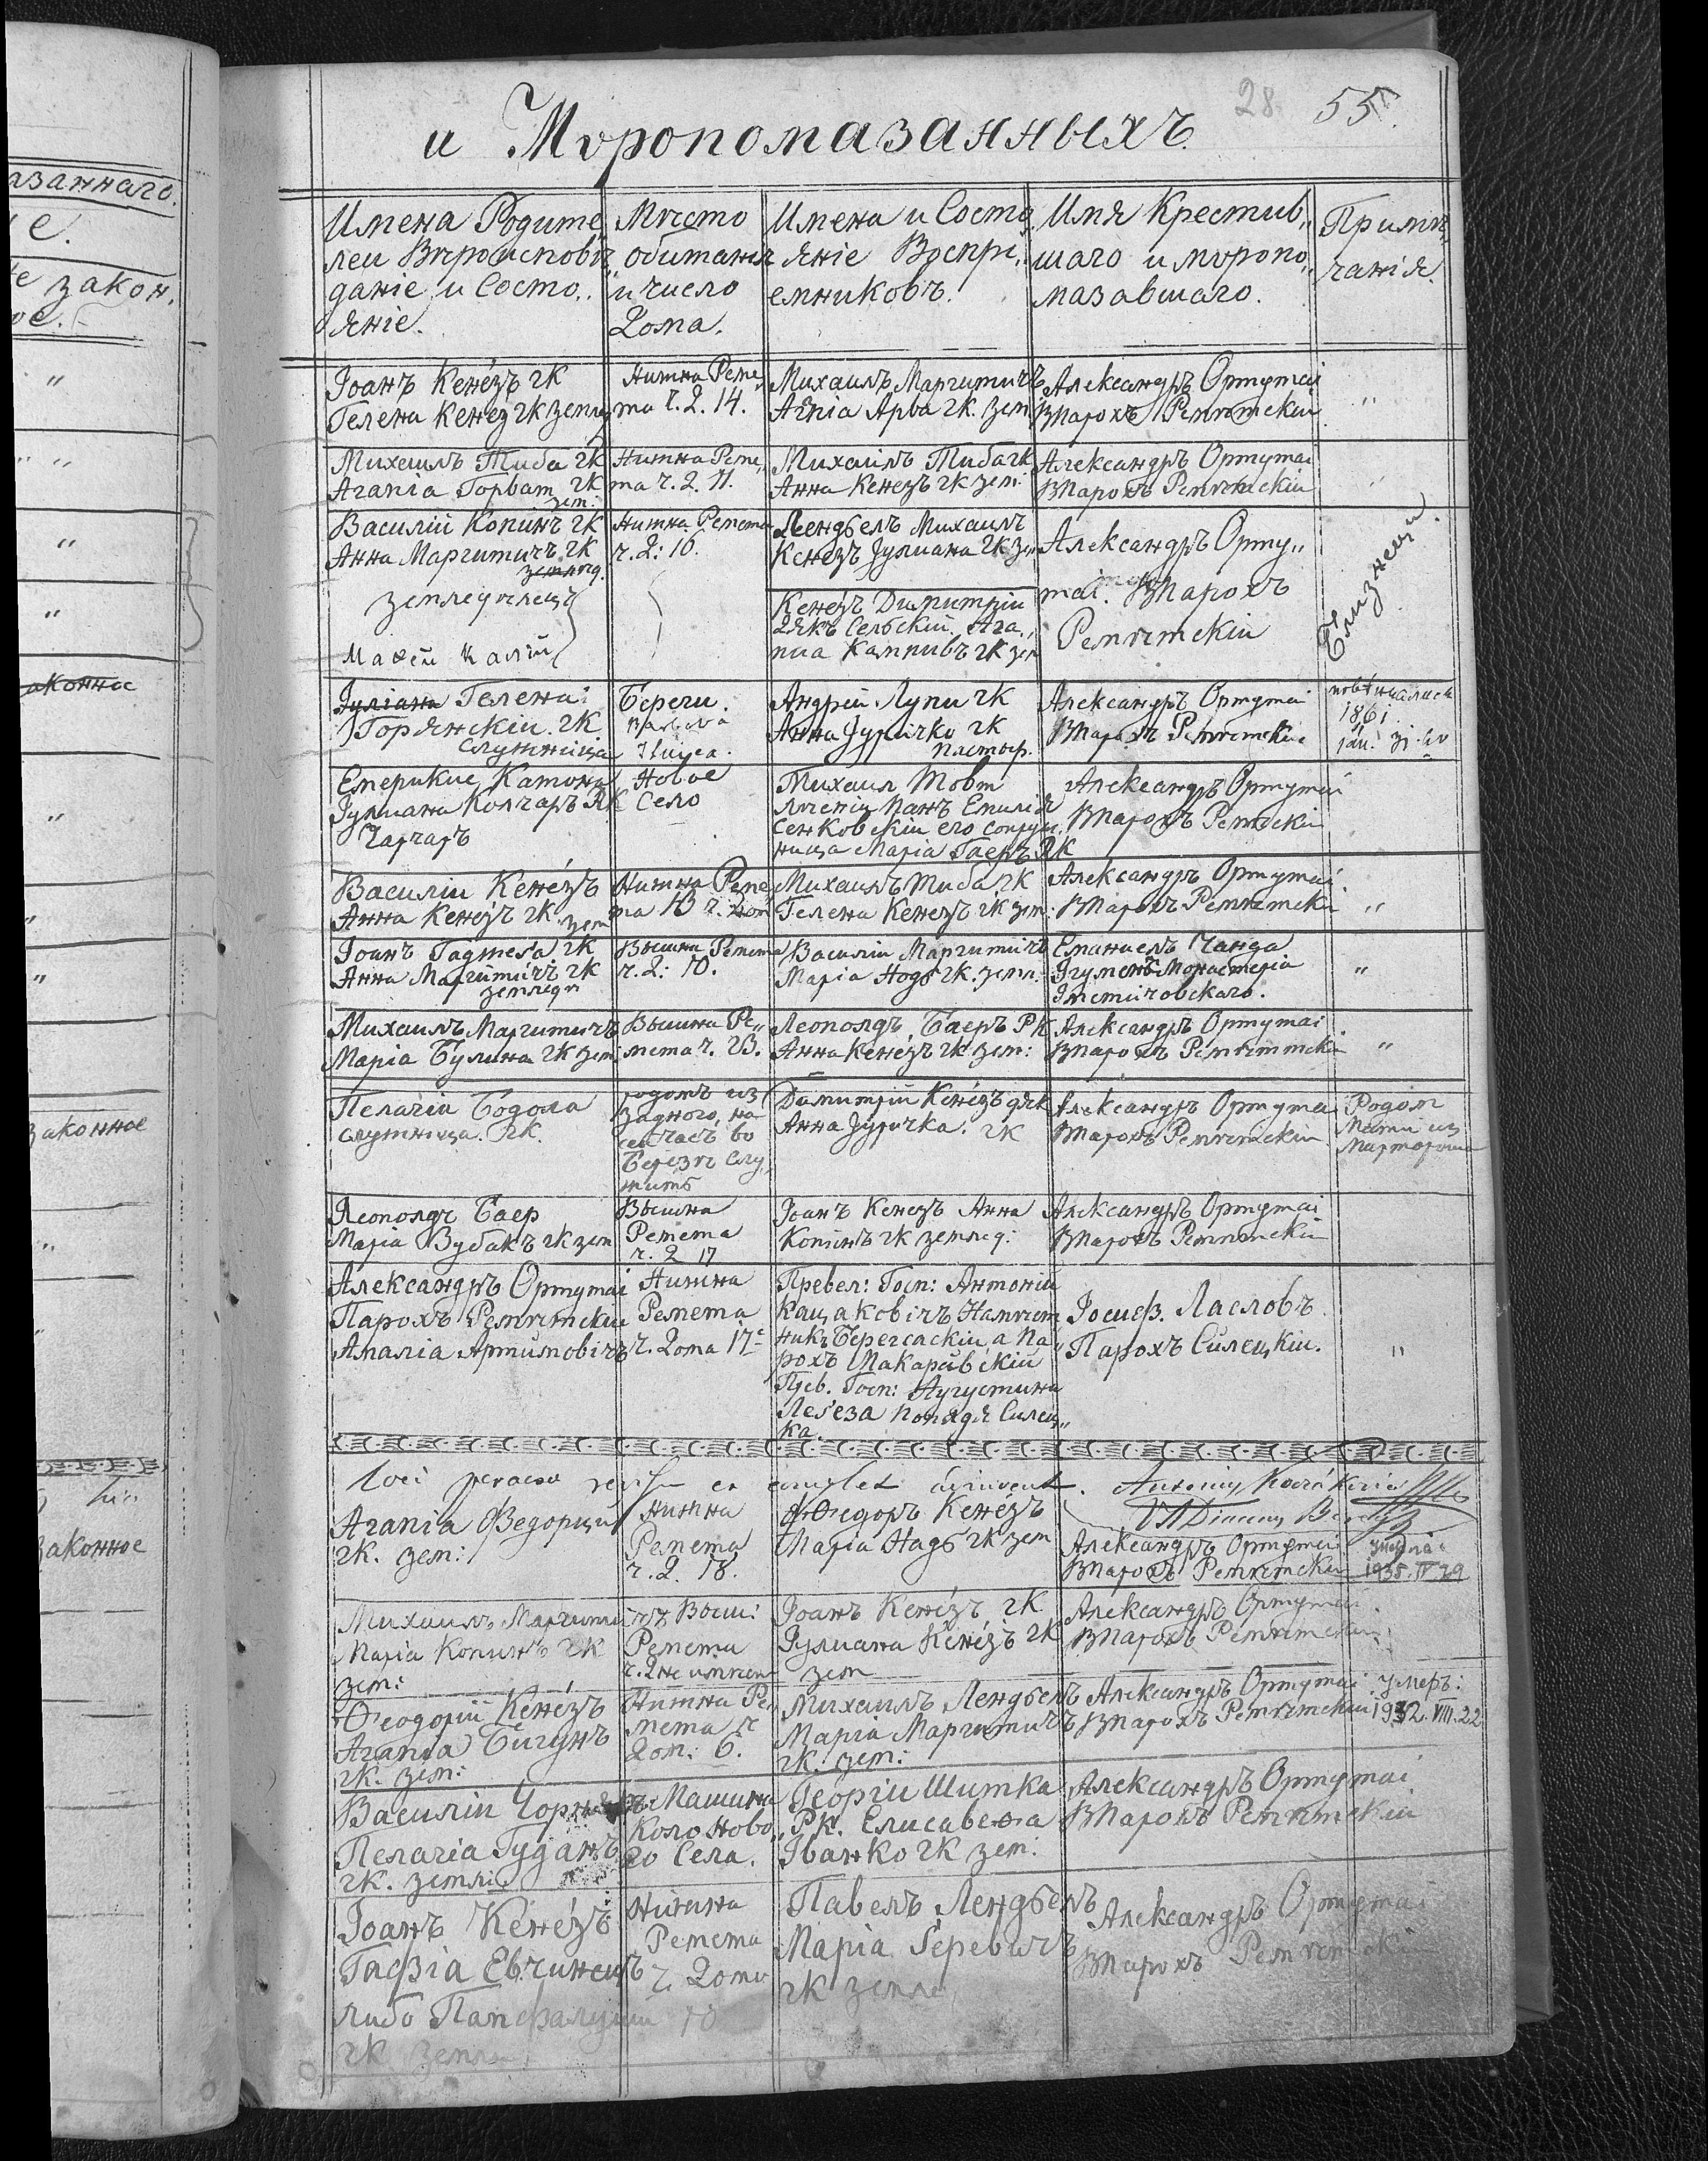 28 55.
и Мѵропомазанныхъ.
Имена Родите„
леи Вѣроисповѣ„
даніе и Состо„
яніе.
Мѣсто
обитанія
и число
Дома.
Имена и Состо„
яніе Воспрі„
емниковъ.
Имя Крестив„
шаго и мѵропо„
мазавшаго.
Примѣ„
чанія.
Іоанъ Кенéзъ гк
Гелена Кенез гк земле
Нижна Реме„
та ч. д. 14.
Михаилъ Маргитичъ
Агпіа Арва гк. зем
Александръ Ортутаі
ВПарохъ Реметскіи
"
Михаилъ Тиба гк
Агапіа Горват гк
зем:
Нижна Реме„
та ч. д. 11.
Михаилъ Тиба гк
Анна Кенезъ гк зем:
Александръ Ортутаі
ВПарохъ Реметскіи
"
Василіи Копинъ гк
Анна Маргитичъ гк
земледѣлецъ
Нижна Ремета
ч. д: 16.
Лендьелъ Михаилъ
Кенезъ Іулиана гк зем
Кенéзъ Димитріи
дякъ Сельскіи. Ага„
пиа гк зем
Александръ Орту„
таі. ВПарохъ
Реметскіи
Близнеци.
Іуліана Гелена:
Горянскіи гк.
служница
Береги.
Андрей Лупи гк
Анна Јуричко гк
пастыр.
Александръ Ортутаі
ВПарохъ Реметскіи
1861
jan.
Емерикие Катона
Іулиана Колчаръ РК
Чарчаръ
Новое
Село
Михаил Товт
панъ Емиліи
Сенковскіи его супру„
ница Маріа Баеръ РК
Александръ Ортутаи
ВПарохъ Реметскіи
Василіи Кенéзъ
Анна Кенéзъ гк. зем
Нижна Реме„
та 13 ч. дом
Михаилъ Тиба гк
Гелена Кенезъ гк зем:
Александръ Ортутаі
ВПарохъ Реметскіи
"
Іоанъ гк
Анна Маргитичъ гк
земледѣ
Вышна Ремета
ч. д: 10.
Василіи Маргитичъ
Маріа Нодь гк. земл.
Еманиелъ Чанда
Ігуменъ Монастеріа
"
Михаилъ Маргитичъ
Маріа Булина гк зем:
Вышна Ре„
мета ч. 23.
Леополдъ Баеръ РК
Анна Кенéзъ гк зем:
Александръ Ортутаі
ВПарохъ Реметскіи
"
Пелагіи Бодола
служница. гк.
родомъ из
Задного, на
сейчасъ во
Березѣ слу„
житъ
Димитріи Кенéзъ дяк
Анна Јуричка. гк
Александръ Ортутаі
ВПарохъ Реметскіи
Родом
Мати из
Леополдъ Баер
Маріа Зубакъ гк зем
Вышна
Ремета
ч. д 17
Іоанъ Кенезъ Анна
Копинъ гк землед:
Александръ Ортутаі
ВПарохъ Реметскіи
Александръ Ортутаі
Парохъ Реметскіи
Амаліа Артимовічъ
Нижна
Ремета
ч. дома 17
Превел: Госп: Антоніи
Кацаковічъ Намѣст„
никъ Березскіи а Па„
рохъ Макарівскіи
Прев. Госп: Аугустина
Легеза попадя Силец„
ка.
Іосиф. Ласловъ
Парохъ Силецкіи.
"
Агапіа Федорци
гк. зем:
Нижна
Ремета
ч. д. 18.
Ѳеодоръ Кенéзъ
Маріа Надь гк зем
Александръ Ортутаі
ВПарохъ Реметскіи
1935. IV 29
Михаилъ Маргитичъ
Маріа Копинъ гк
зем:
Выш:
Ремета
Іоанъ Кенéзъ гк
Іулиана Кенéзъ гк
зем
Александръ Ортутаі
ВПарохъ Реметскіи
Ѳеодоріи Кенéзъ
Агапіа Бигунъ
гк. зем:
Нижна Ре„
мета ч
дом: 6.
Михаилъ Лендьелъ
Маріа Маргитичъ
гк. зем:
Александръ Ортутаі
ВПарохъ Реметскіи
умеръ:
1932. VIII. 22
Василіи
Пелагіа Гуданъ
гк. земле
Машина
Коло Ново„
го Села.
Георгіи Шитка
Рк. Елисавеѳа
Іванко гк зем:
Александръ Ортутаі
ВПарохъ Реметскіи
Іоанъ Кенéзъ
Гафіа Евчинецъ
либо
гк земле
Нижна
Ремета
ч. дома
10
Павелъ Лендьелъ
Маріа
гк земле
Александръ Ортутаі
ВПарохъ Реметскіи